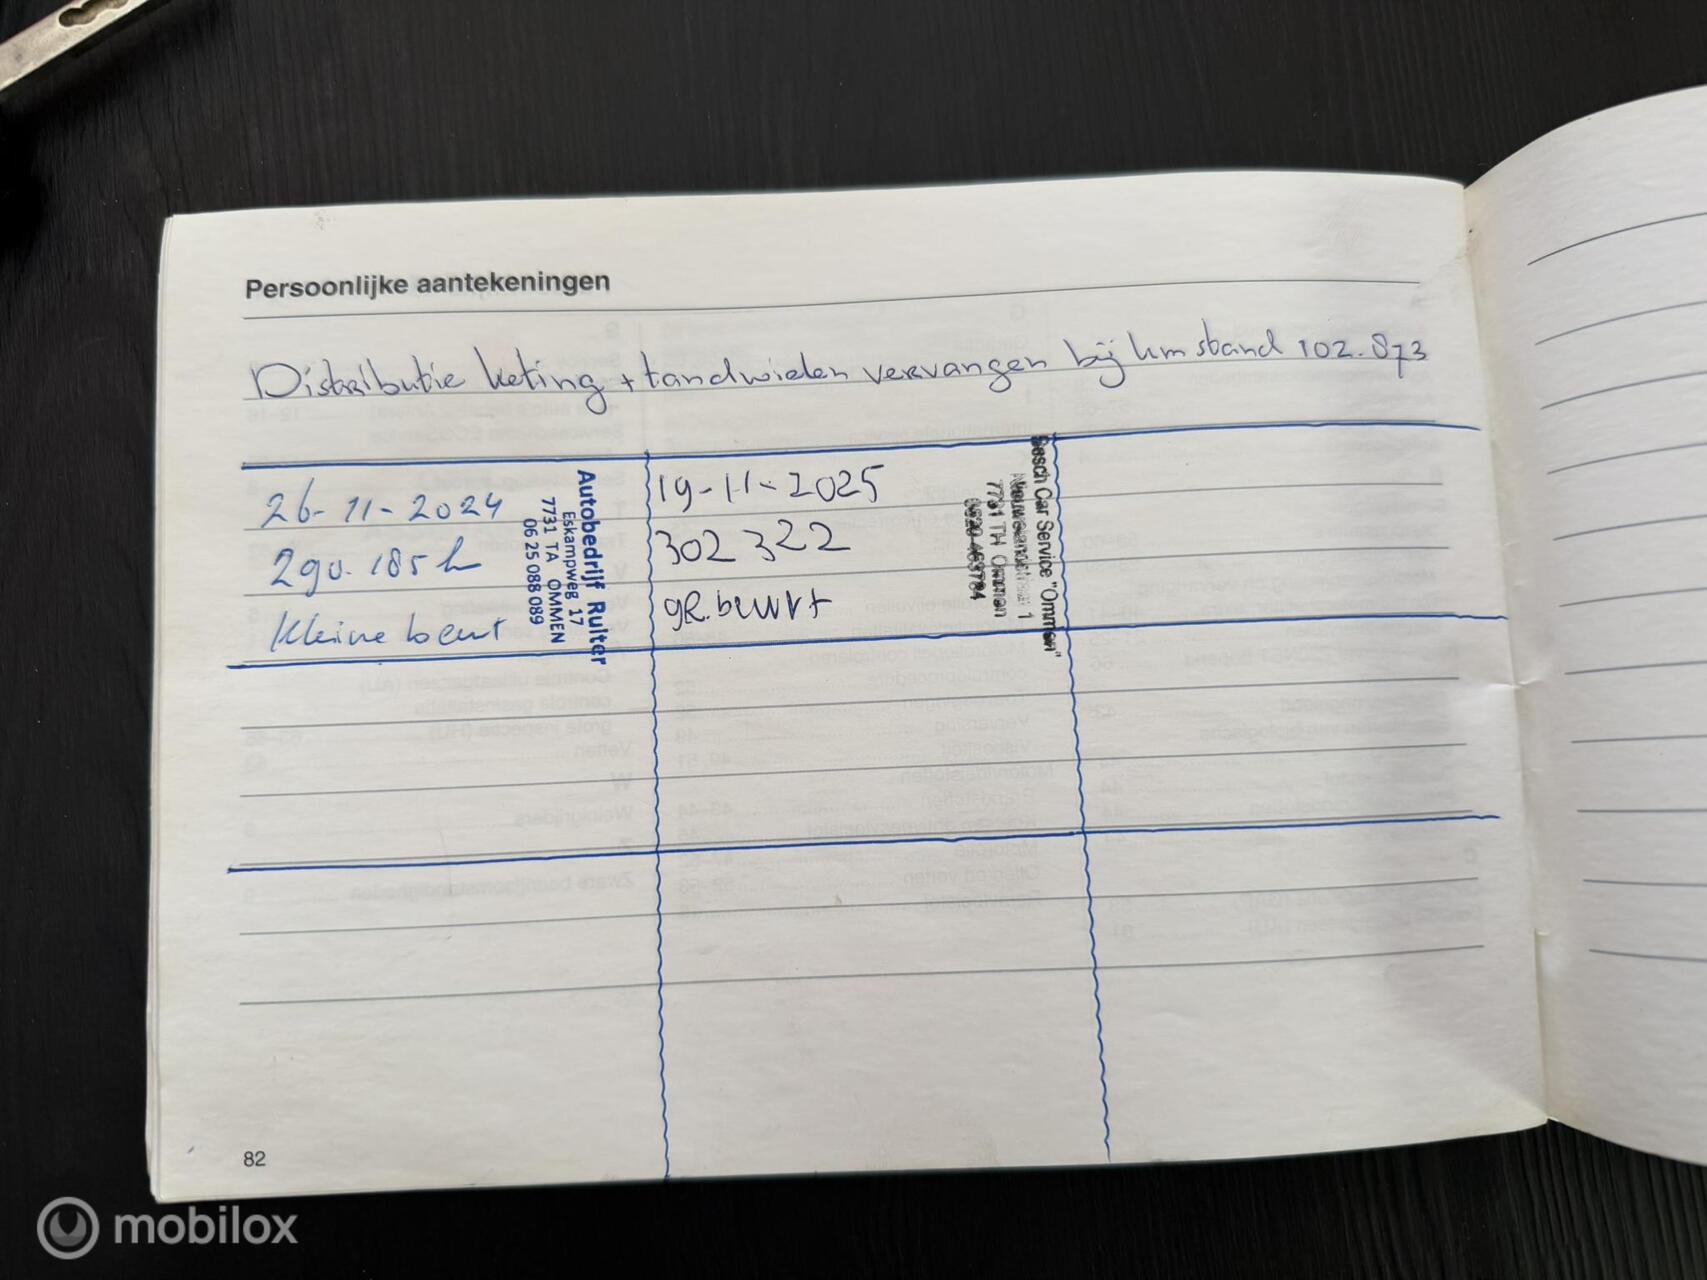 Persoonlijke aantekeningen
Distributie keting + tandwielen vervangen bij km stand 102.873
26-11-2024
290.185 h
Kleine beurt
Autobedrijf Ruiter
Eskampweg 17
7731 TA OMMEN
06 25 088 089
19-11-2025
302322
gR. beurt
Bosch Car Service "Ommen"
1
7731 TH Ommen
82
mobilox